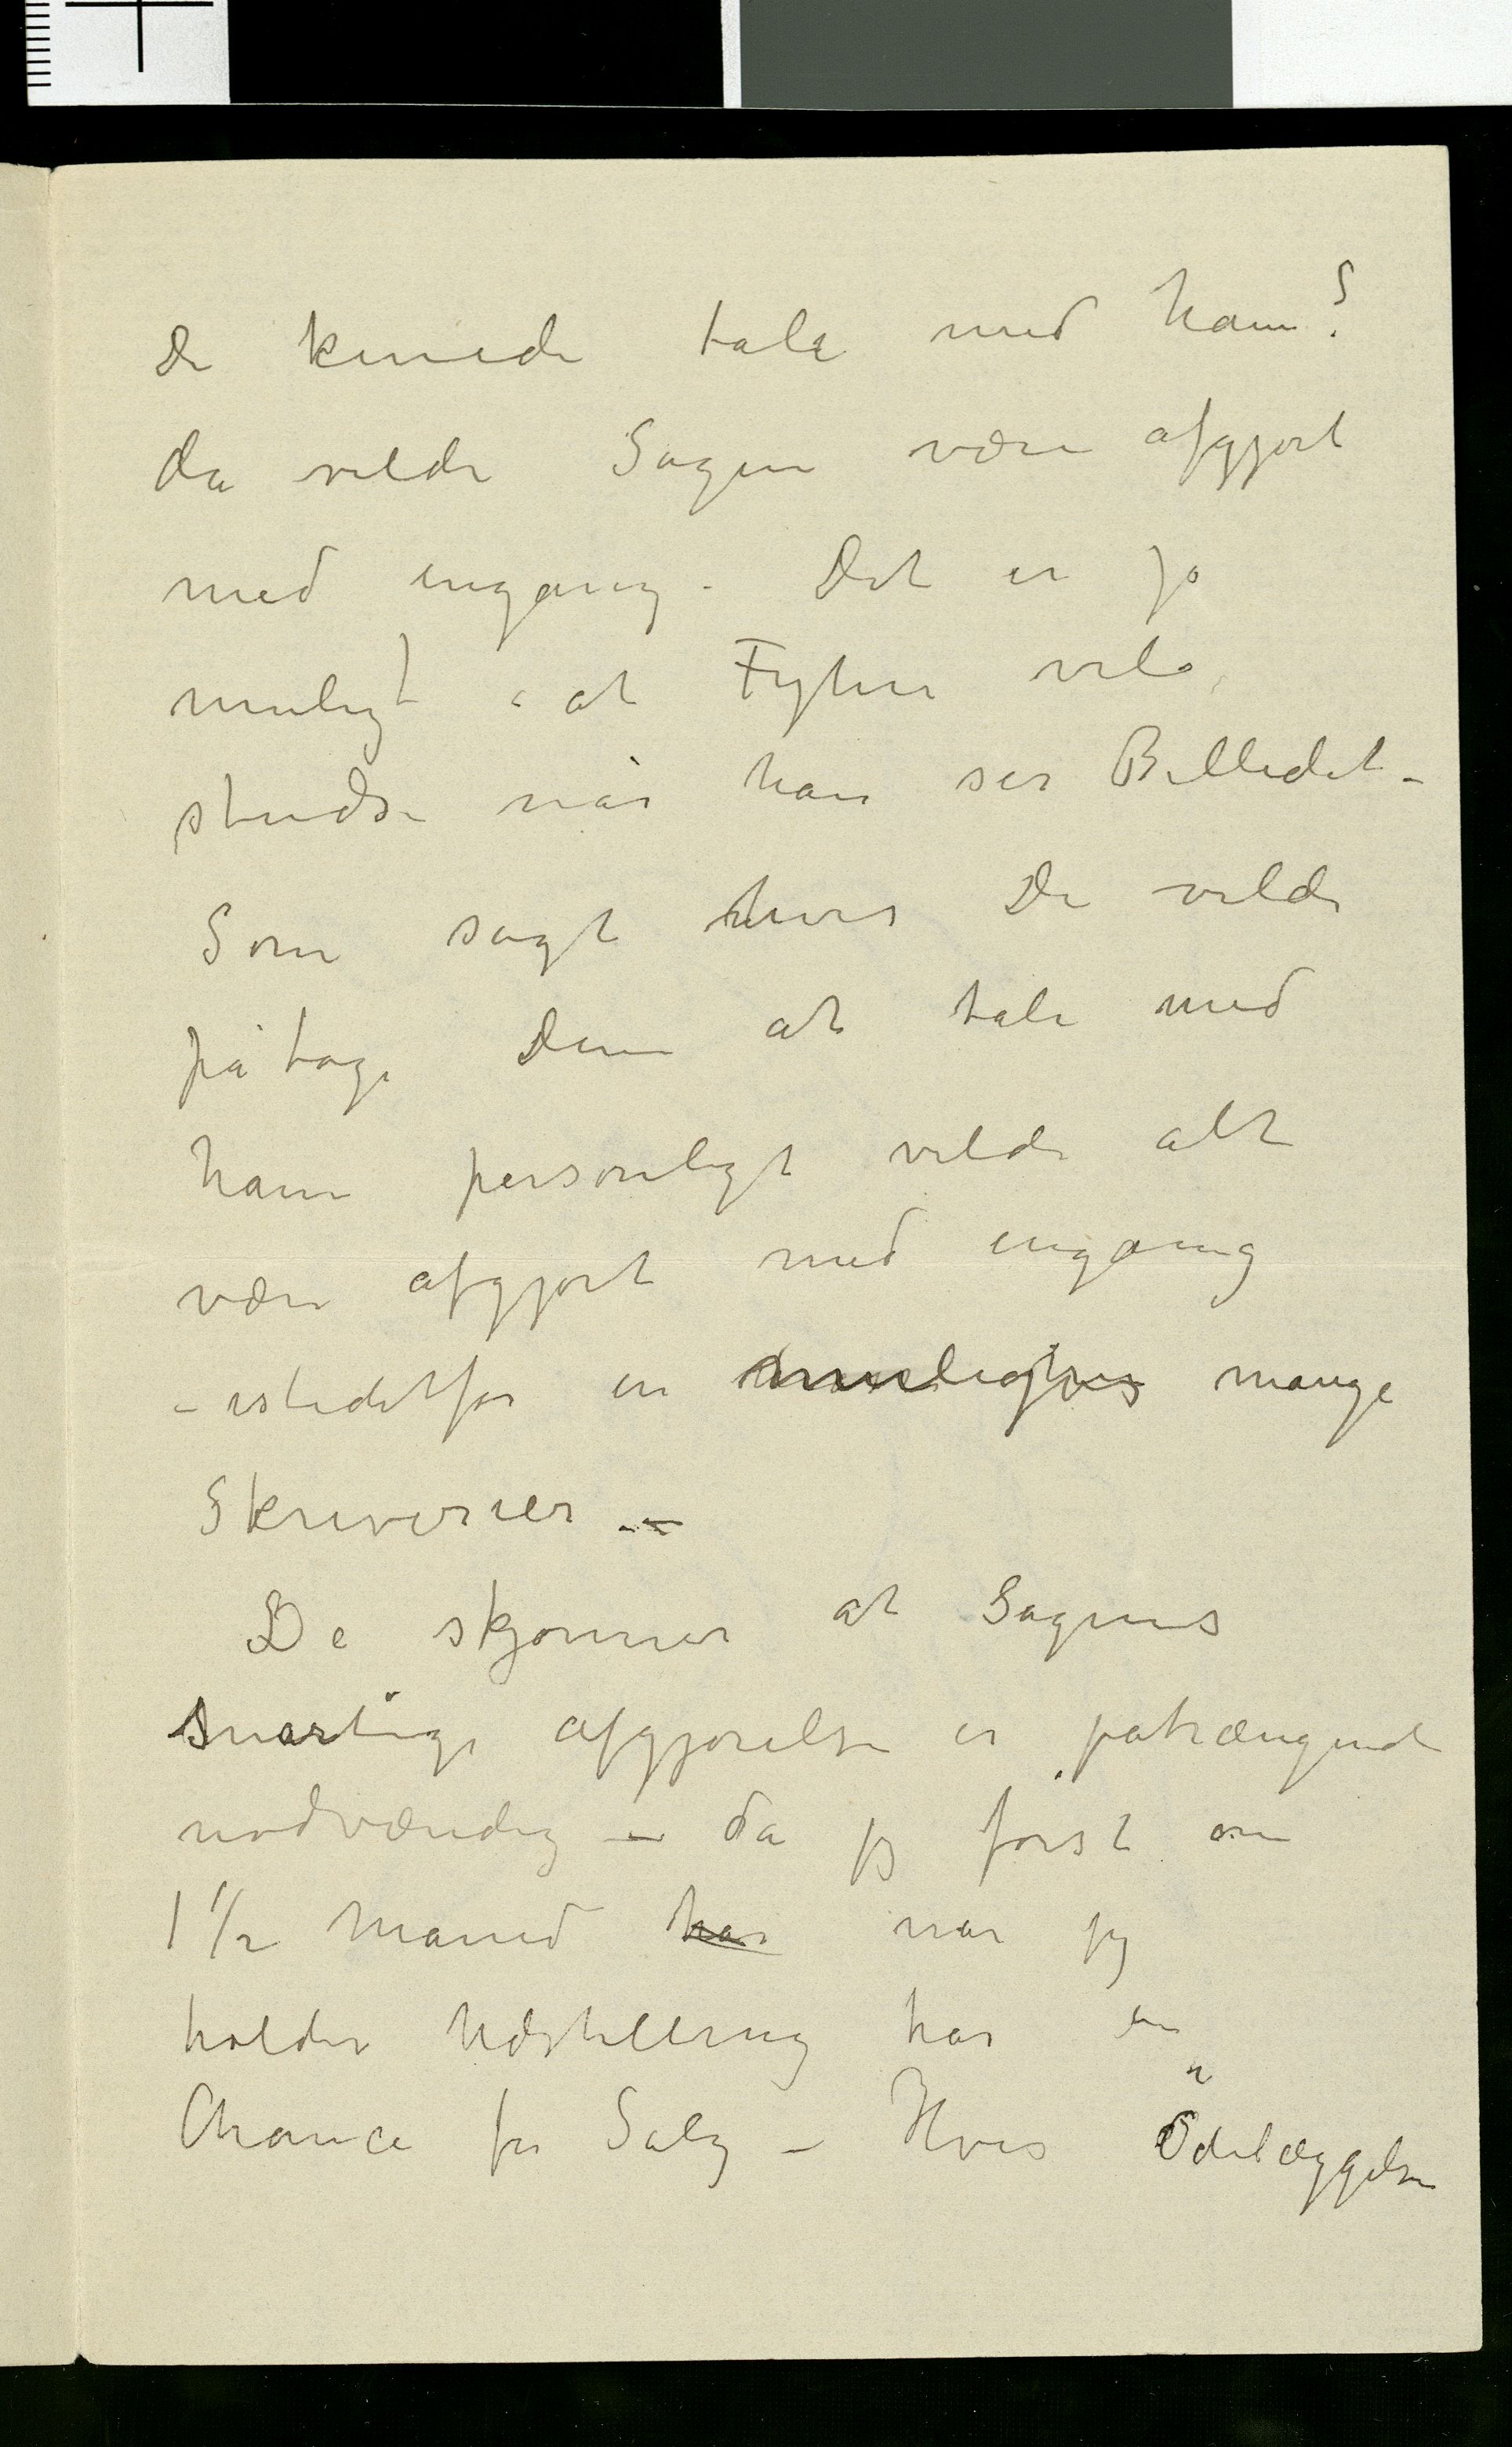 De kunde tale med ham?
da vilde Sagen være afgjort
med engang – Det er jo
muligt – at Fyhn vil
studse når han ser Billedet –
Som sagt hvis De vilde
påtage Dem at tale med
ham personligt vilde alt
være afgjort med engang
– istedetfor en muligvis mange
Skriverier –
De skjønner at Sagens
snarlige afgjørelse er påtrængende
nødvændig – da jeg først om
1 1/2 Måned har når jeg
holder Udstilling har en
Chance for Salg – Hvis Ödelæggelsen